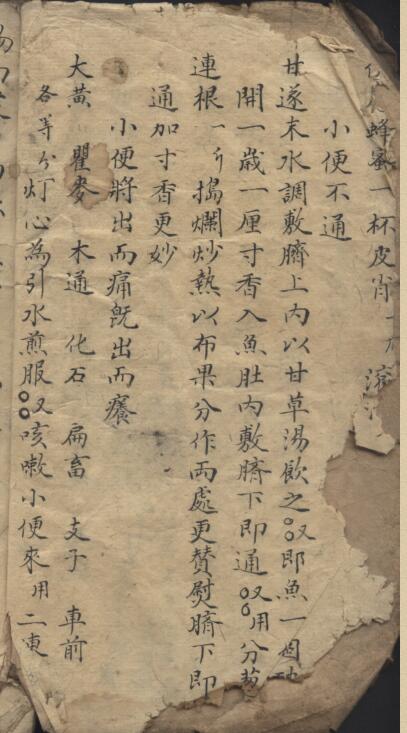 蜂蜜一杯皮肖一
小便不通
甘遂末水調敷臍上内以甘草湯飲之又即魚一個
開一歲一厘寸香入魚肚内敷臍下即通又用分葱
連根一斤搗爛炒熱以布果分作兩處更贊熨臍下即
通加寸香更妙
小便將出而痛旣出而癢
大黃 瞿麥 木通 化石 扁畜 支子 車前
各等分灯心為引水煎服又咳嗽小便來用二東